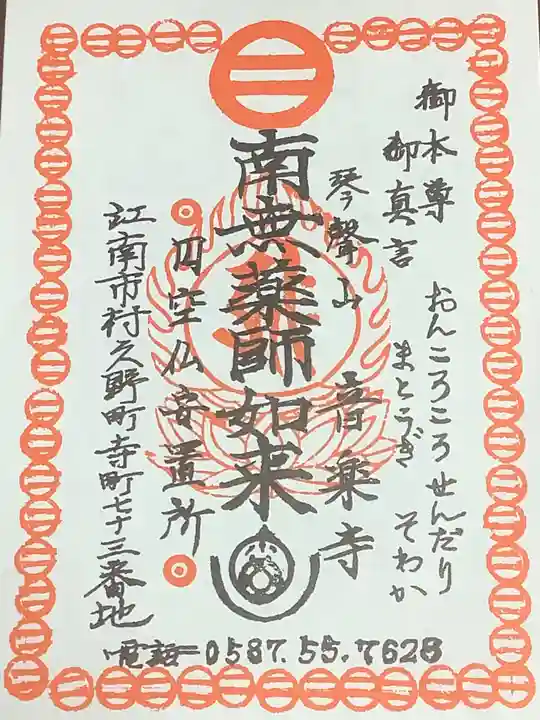 御本尊
御真言
おんころころ せんだり
まとうぎ そわか
琴声山 音楽寺
南無薬師如来
円空仏安置所
江南市村久野町寺町七十三番地
電話=0587.55.7628